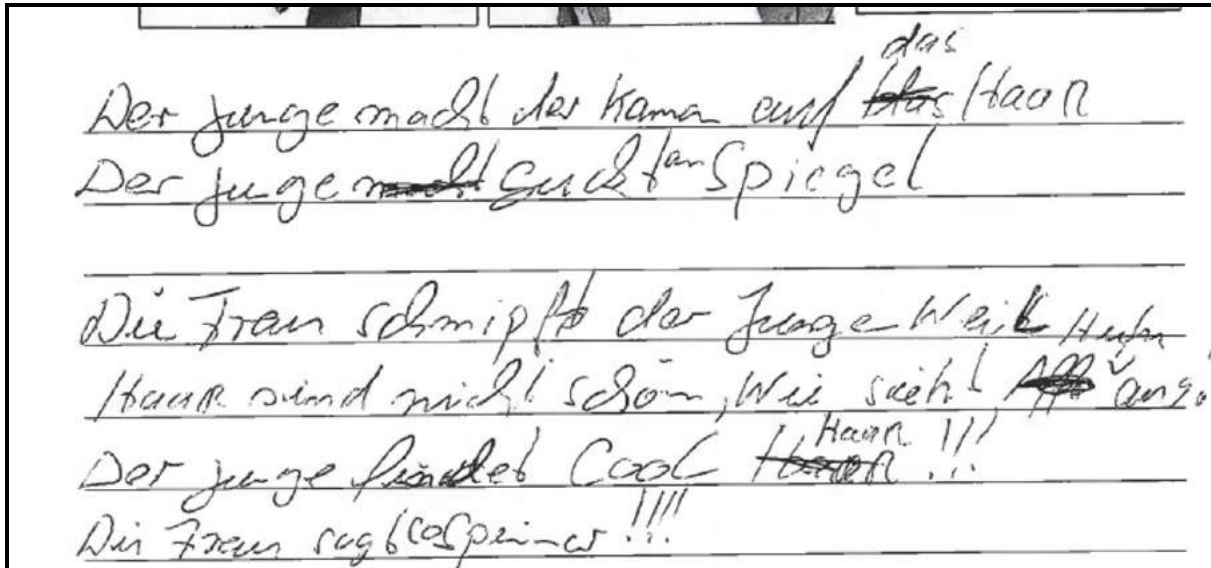 das
Der Junge macht der Kaman auf Haar
Der Junge guckt an Spiegel
Die Frau schmipft der Junge Weil
Haar sind nicht schön, Wie sieht
Der Junge findet Cool Haar !!!
Die Frau sagt !!!!